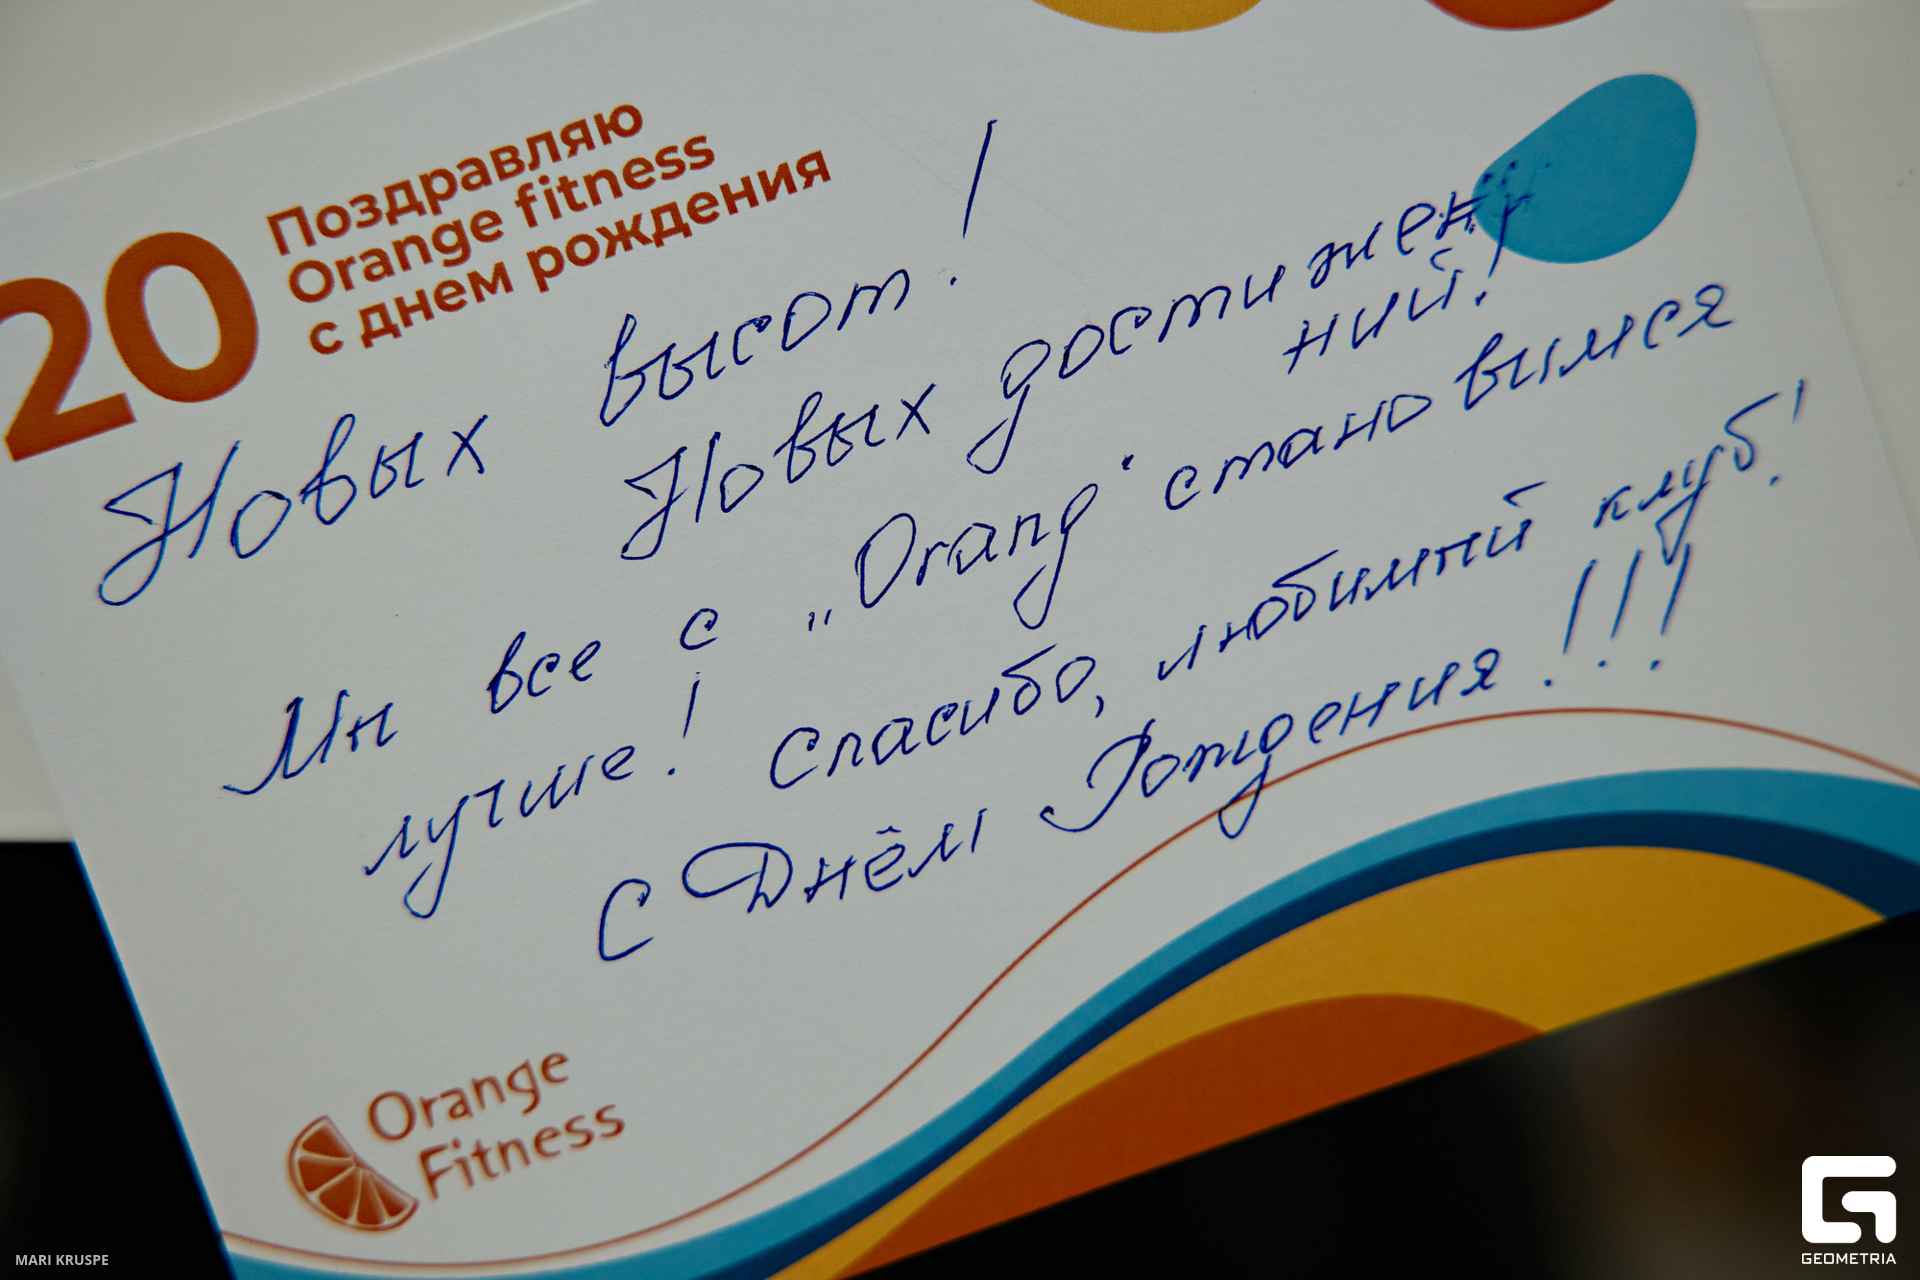 20
Поздравляю
Orange fitness
с днем рождения
Новых высот!
Новых достижен
ний!
Мы все с „Orang" становимся
лучше! Спасибо, любимый клуб!
С Днём Рождения!!!
Orange
Fitness
MARI KRUSPE
GEOMETRIA